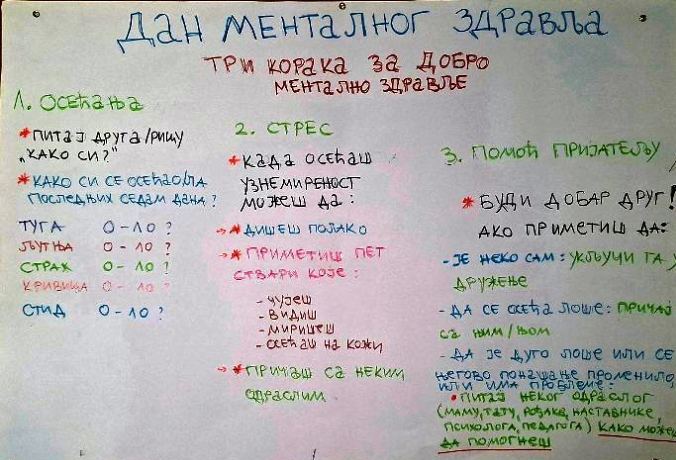 ДАН МЕНТАЛНОГ ЗДРАВЉА
ТРИ КОРАКА ЗА ДОБРО
МЕНТАЛНО ЗДРАВЉЕ
1. ОСЕЋАЊА
* ПИТАЈ ДРУГА/РИЦУ
„КАКО СИ?"
* КАКО СИ СЕ ОСЕЋАО/ЛА
ПОСЛЕДЊИХ СЕДАМ ДАНА?
ТУГА 0-10?
ЉУТЊА 0-10?
СТРАХ 0-10?
КРИВИЦА 0-10?
СТИД 0-10?
2. СТРЕС
* КАДА ОСЕЋАШ
УЗНЕМИРЕНОСТ
МОЖЕШ ДА:
→ * ДИШЕШ ПОЛАКО
→ * ПРИМЕТИШ ПЕТ
СТВАРИ КОЈЕ:
- ЧУЈЕШ
- ВИДИШ
- МИРИШЕШ
- ОСЕЋАШ НА КОЖИ
→ * ПРИЧАШ СА НЕКИМ
ОДРАСЛИМ.
3. ПОМОЋ ПРИЈАТЕЉУ
* БУДИ ДОБАР ДРУГ!
АКО ПРИМЕТИШ ДА:
- ЈЕ НЕКО САМ: УКЉУЧИ ГА У
ДРУЖЕЊЕ
- ДА СЕ ОСЕЋА ЛОШЕ: ПРИЧАЈ
СА ЊИМ/ЊОМ
- ДА ЈЕ ДУГО ЛОШЕ ИЛИ СЕ
ЊЕГОВО ПОНАШАЊЕ ПРОМЕНИЛО,
ИЛИ ИМА ПРОБЛЕМЕ:
• ПИТАЈ НЕКОГ ОДРАСЛОГ
(МАМУ, ТАТУ, РОЂАКЕ, НАСТАВНИКЕ,
ПСИХОЛОГА, ПЕДАГОГА) КАКО МОЖЕШ
ДА ПОМОГНЕШ